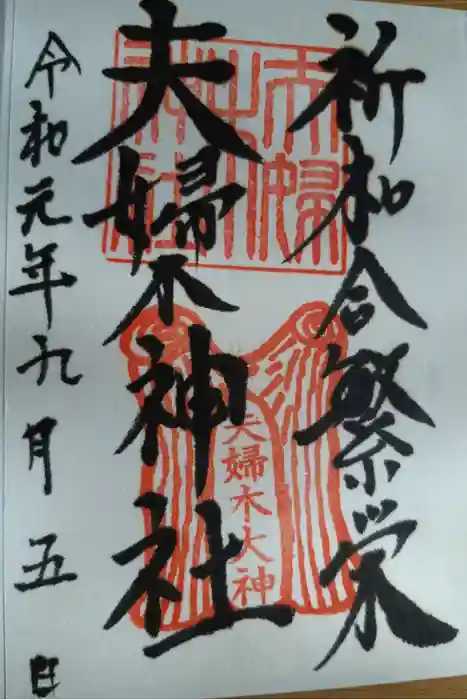 祈和合繁栄
夫婦木神社
令和元年九月五日
夫婦木神社
夫婦木大神